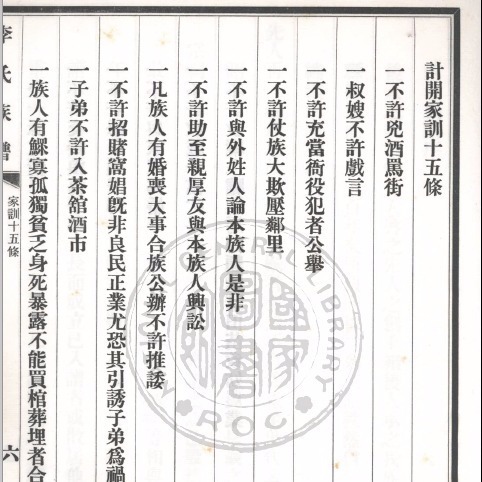 計開家訓十五條
一不許兇酒罵街
一叔嫂不許戲言
一不許充當衙役犯者公舉
一不許仗族大欺壓鄰里
一不許與外姓人論本族人是非
一不許助至親厚友與本族人興訟
一凡族人有婚喪大事合族公辦不許推諉
一不許招賭窩娼旣非良民正業尤恐其引誘子弟爲禍
一子弟不許入茶舘酒市
一族人有鰥寡孤獨貧乏身死暴露不能買棺葬埋者合
李氏族譜
家訓十五條
六
國家圖書館
NATIONAL CENTRAL LIBRARY
ROC